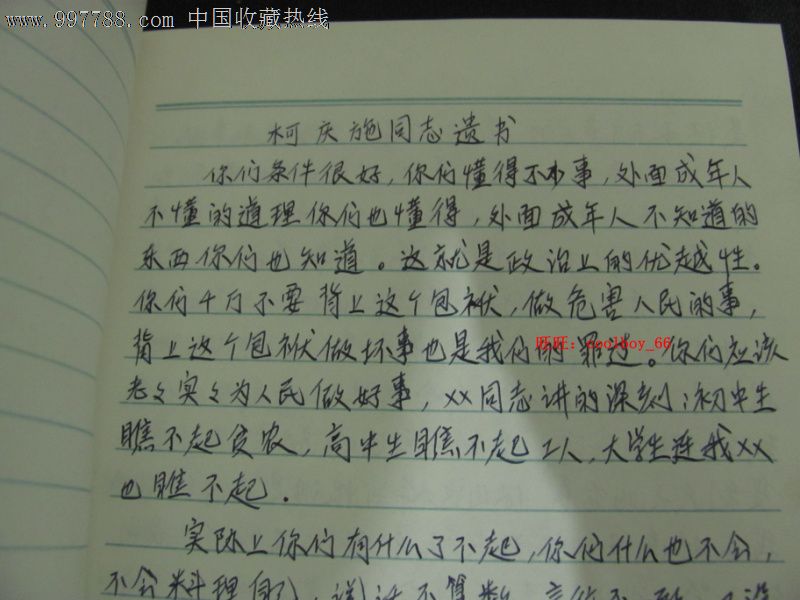 www.997788.com 中国收藏热线
柯庆施同志遗书
你们条件很好,你们懂得不少事,外面成年人
不懂的道理你们也懂得,外面成年人不知道的
东西你们也知道。这就是政治上的优越性。
你们千万不要背上这个包袱,做危害人民的事,
背上这个包袱做坏事也是我们的罪过。你们应该
旺旺:coolboy_66
老々实々为人民做好事,xx同志讲的深刻:初中生
瞧不起贫农,高中生瞧不起工人,大学生连我xx
也瞧不起.
实际上你们有什么了不起,你们什么也不会,
不会料理自己,说话不算数,